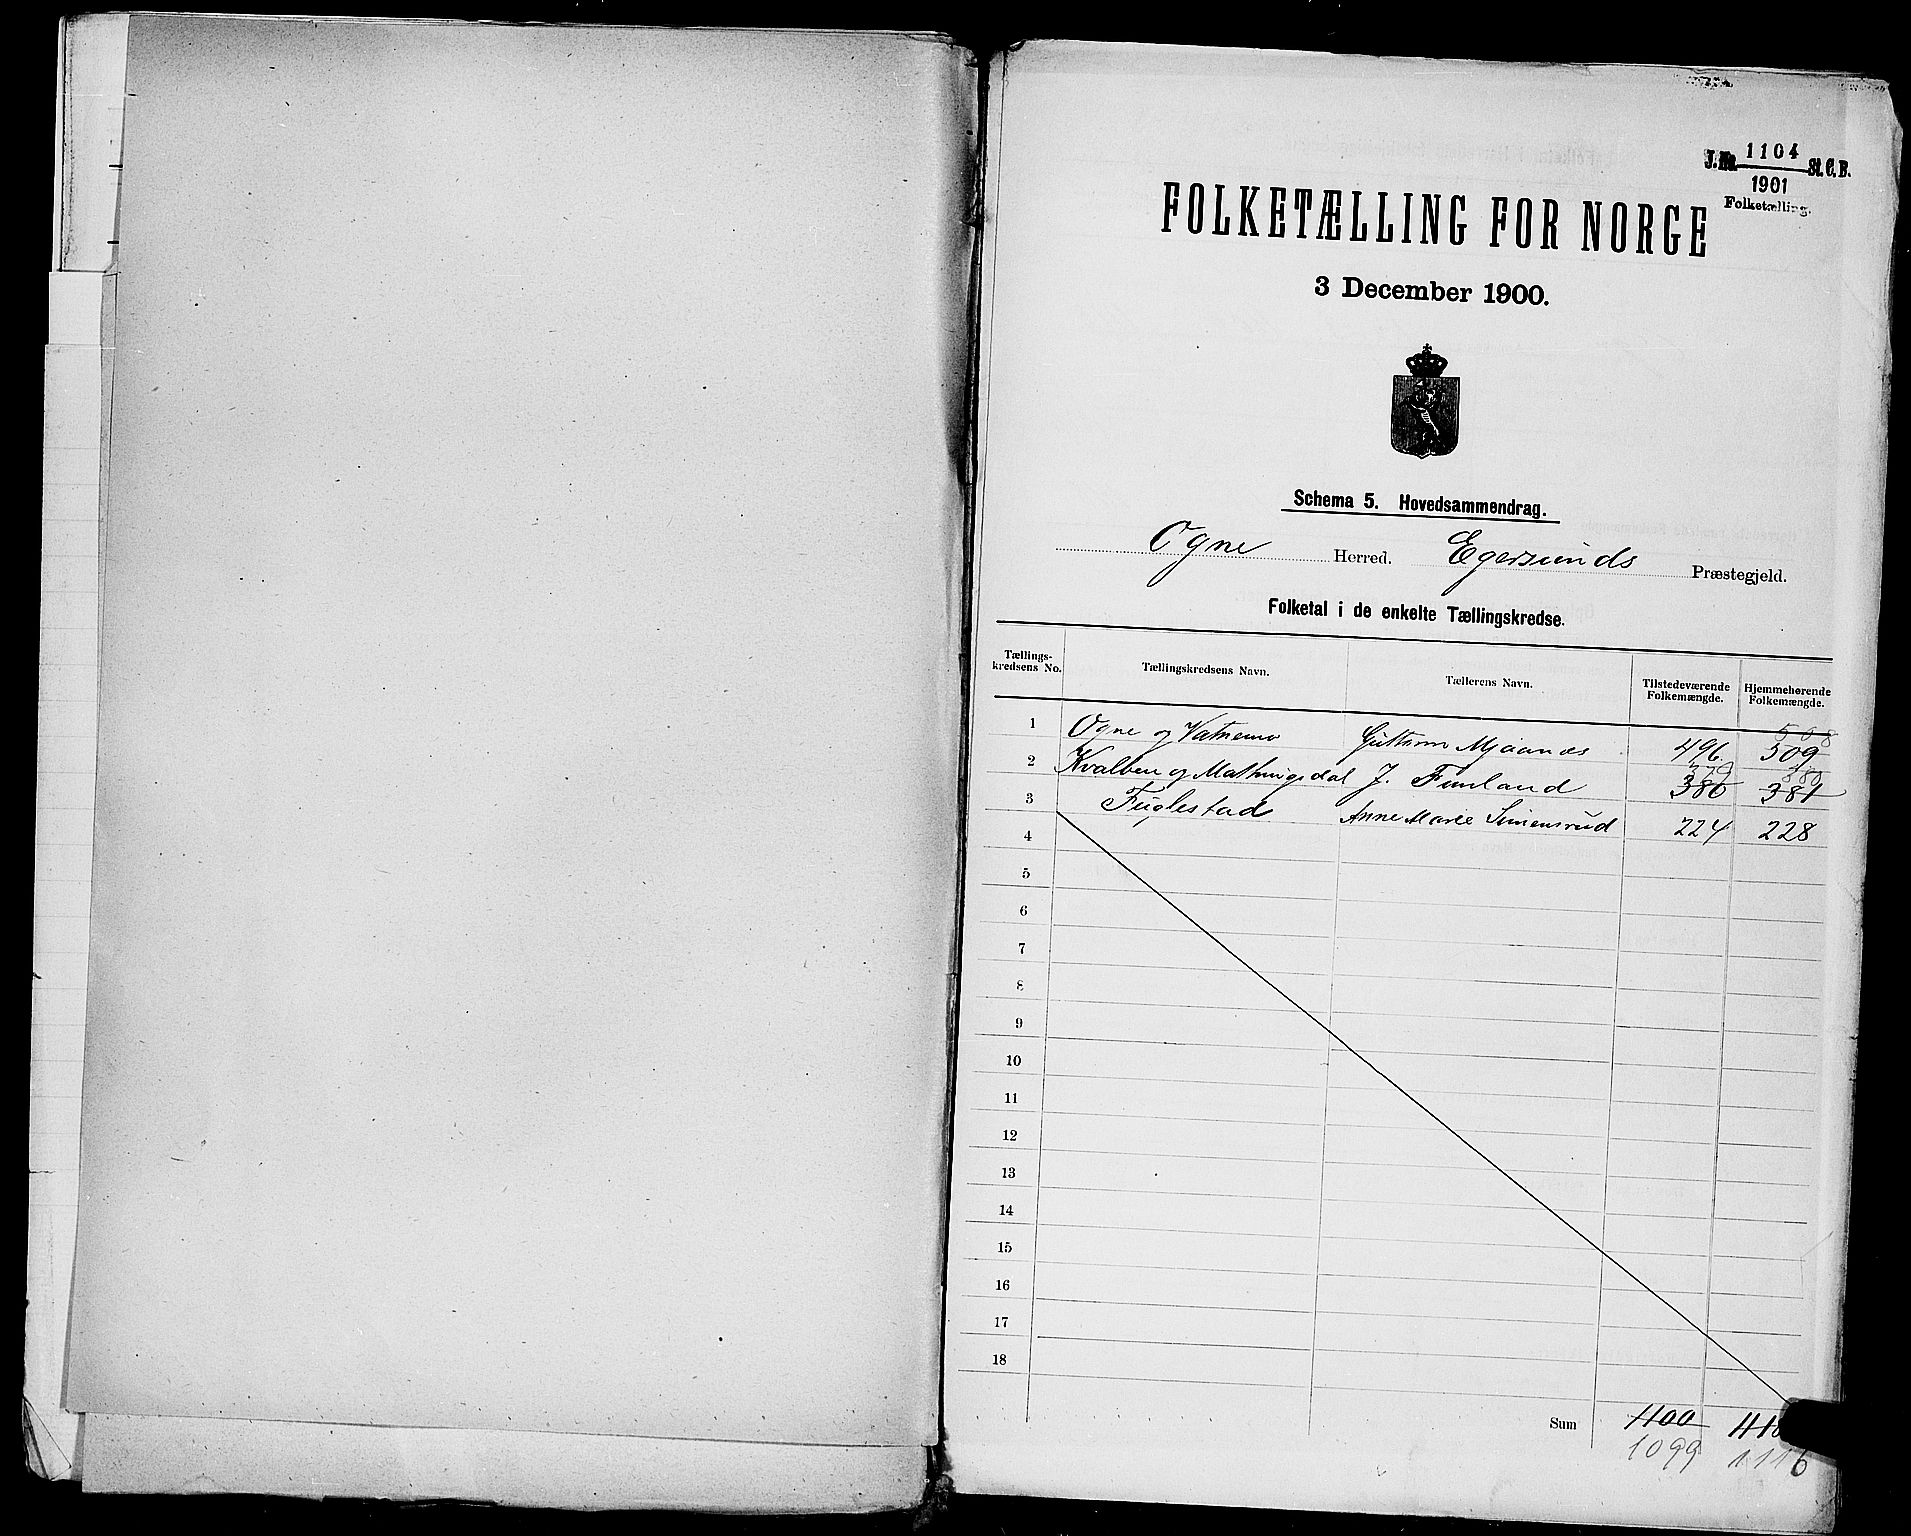 J.No. 1104 St.C.B.
1901
Folketælling.
FOLKETÆLLING FOR NORGE
3 December 1900.
Schema 5. Hovedsammendrag.
Ogne Herred. Egersunds Præstegjeld.
Folketal i de enkelte Tællingskredse.
Tællings-kredsens No. Tællingskredsens Navn. Tællerens Navn. Tilstedeværende Folkemængde. Hjemmehørende Folkemængde.
508
1 Ogne og Vatnemo Guttorm Mjaanes 496 509
379 380
2 Kvalben og Mathingsdal J. Fimland 380 381
3 Fuglestad Anne Marie Simensrud 224 228
4
5
6
7
8
9
10
11
12
13
14
15
16
17
18
Sum 1100
1099 1116